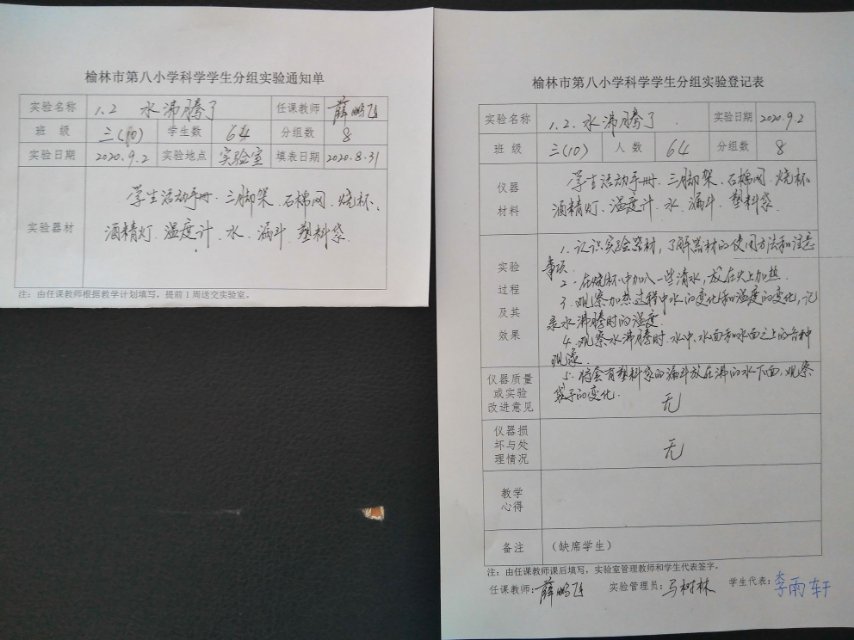 榆林市第八小学科学学生分组实验通知单
实验名称 1.2 水沸腾了 任课教师 薛鹏飞
班 级 三(10) 学生数 64 分组数 8
实验日期 2020.9.2 实验地点 实验室 填表日期 2020.8.31
实验器材
学生活动手册、三脚架、石棉网、烧杯、
酒精灯、温度计、水、漏斗、塑料袋
注：由任课教师根据教学计划填写，提前1周送交实验室。
榆林市第八小学科学学生分组实验登记表
实验名称 1.2.水沸腾了 实验日期 2020.9.2
班 级 三(10) 人 数 64 分组数 8
仪器
材料
学生活动手册、三脚架、石棉网、烧杯
酒精灯、温度计、水、漏斗、塑料袋
实验
过程
及其
效果
1.认识实验器材，了解器材的使用方法和注意
事项.
2.在烧杯中加入一些清水，放在火上加热.
3.观察加热过程中水的变化和温度的变化，记
录水沸腾时的温度.
4.观察水沸腾时，水中、水面和水面之上的各种
现象.
5.将套有塑料袋的漏斗放在沸的水下面，观察
袋子的变化.
仪器质量
或实验
改进意见
无
仪器损
坏与处
理情况
无
教学
心得
备注 （缺席学生）
注：由任课教师课后填写，实验室管理教师和学生代表签字。
任课教师:薛鹏飞 实验管理员:马树林 学生代表:李雨轩